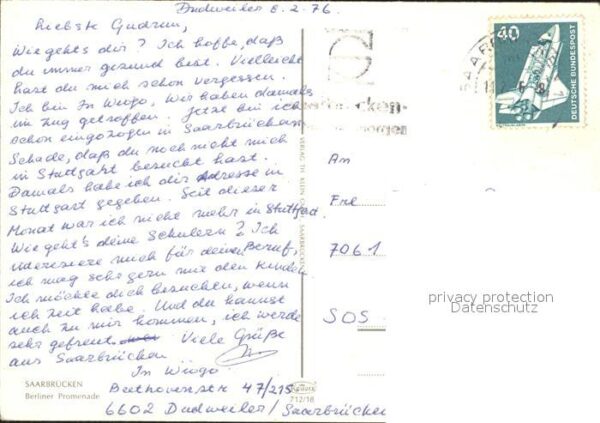 Dudweiler 8.2.76.
Liebste Gudrun,
Wie gehts dir? Ich hoffe, daß
du immer gesund bist. Vielleicht
hast du mich schon vergessen.
Ich bin In Wiogo. Wir haben damals
im Zug getroffen. Jetzt bin ich
schon eingezogen in Saarbrücken.
Schade, daß du noch nicht mich
in Stuttgart besucht hast.
Damals habe ich dir Adresse in
Stuttgart gegeben. Seit dieser
Monat war ich nicht mehr in Stuttgart.
Wie geht's deine Schulern? Ich
interesiere mich für deinen Beruf,
ich mag sehr gern mit den Kindern
Ich möchte dich besuchen, wenn
ich Zeit habe. Und du kannst
auch zu mir kommen, ich werde
sehr gefreut. Viele Grüße
aus Saarbrücken.
In Wiogo
Beethovenstr 47/215
6602 Dudweiler/Saarbrücken
SAARBRÜCKEN
Berliner Promenade
712/18
40
DEUTSCHE BUNDESPOST
An
7061
SOS
privacy protection
Datenschutz